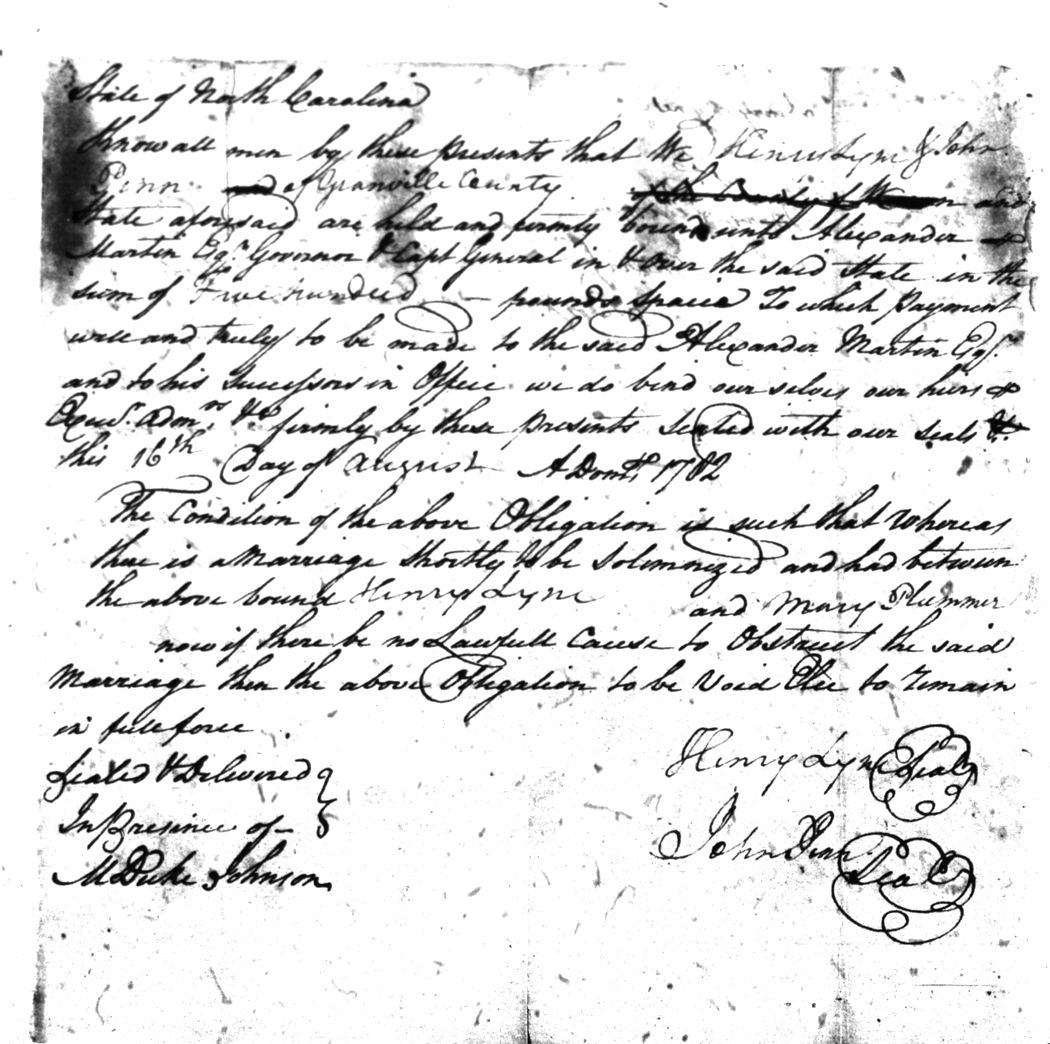 State of North Carolina
Know all men by these presents that We Henry Lyne & John
Penn of Granville County and
State aforesaid are held and firmly bound unto Alexander
Martin Esqr. Governor & Capt General in & over the said State in the
sum of Five hundred pounds Specie To which payment
well and truly to be made to the said Alexander Martin Esqr.
and to his Successors in Office we do bend our selves our heirs
Execrs. Admrs. &c firmly by these presents sealed with our seals
this 16th Day of August A Domi. 1782
The Condition of the above Obligation is such that Whereas
there is a Marriage Shortly to be Solemnized and had between
the above bound Henry Lyne and Mary Plummer
now if there be no Lawfull Cause to Obstruct the said
Marriage then the above Obligation to be Void Else to remain
in full force
Sealed & Delivered
In Presence of
M Duke Johnson
Henry Lyne Seal
John Penn Seal